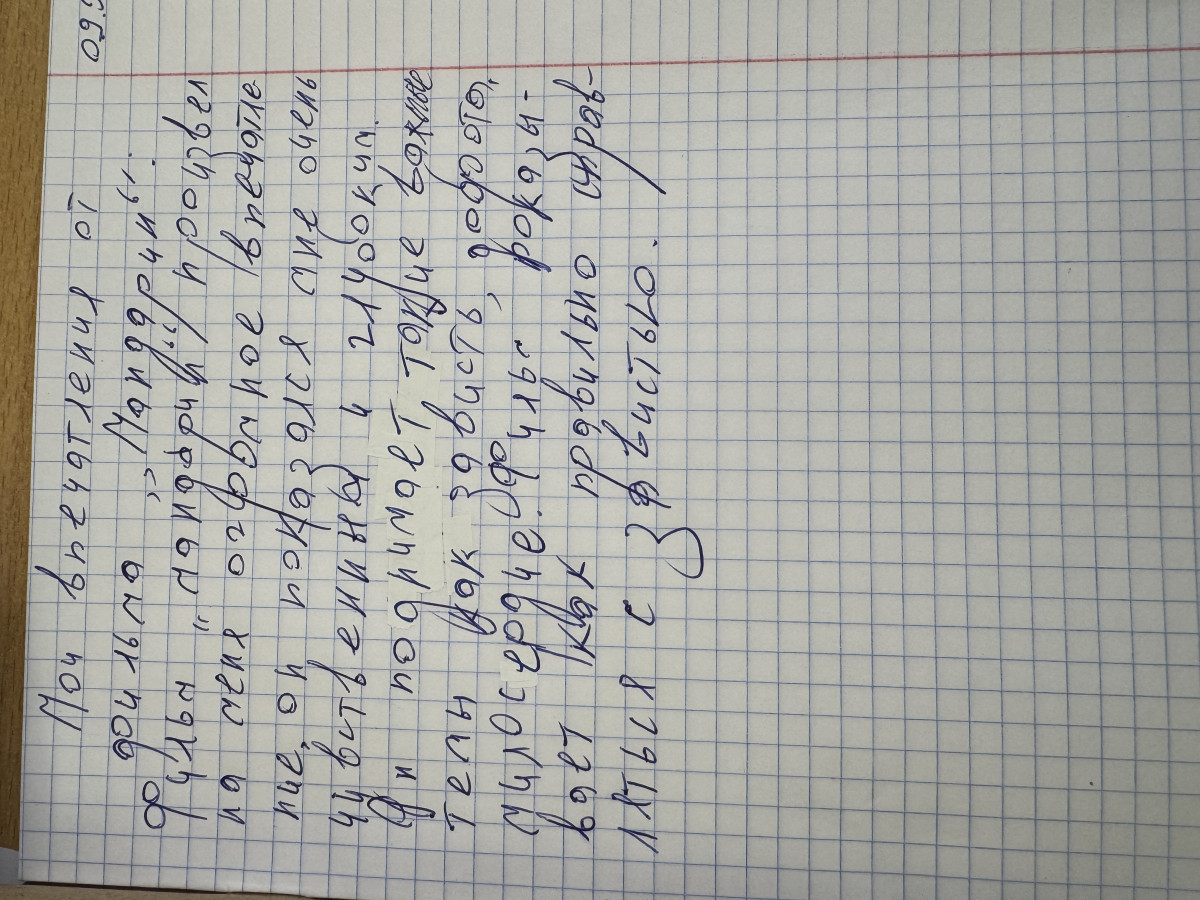 09.
Мои впечатления от
фильма „Мандарин“.
Фильм "мандарин" произвел
на меня огромное впечатле-
ние, он показался мне очень
чувственным и глубоким.
Он поднимает такие важные
темы как зависть, доброта,
милосердие. Фильм показы-
вает как правильно справ-
ляться с завистью.